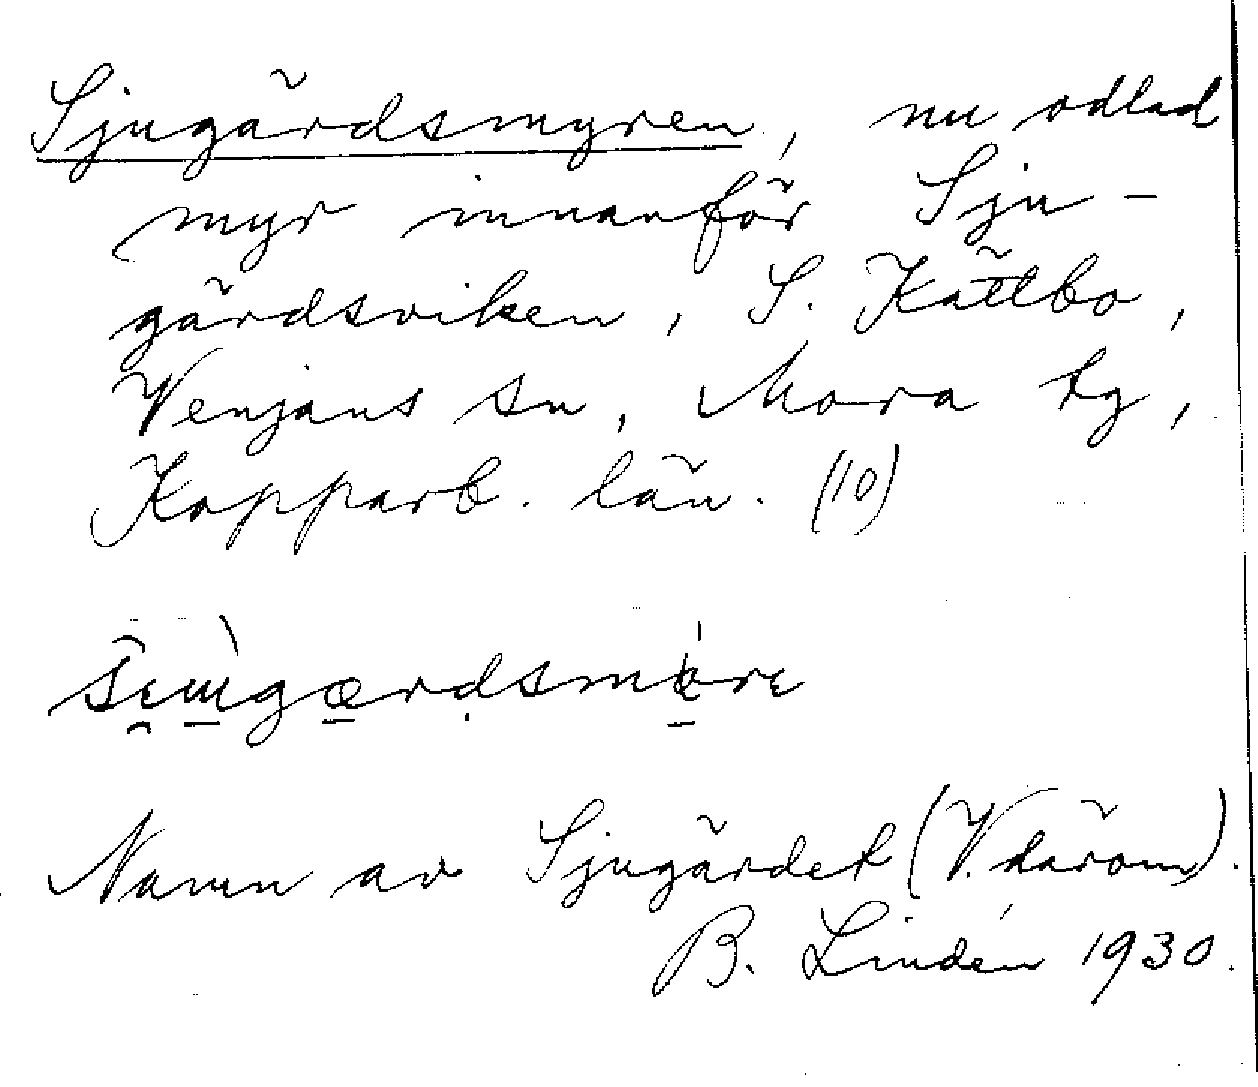 Sjugärdsmyren, nu odlad
myr innanför Sju-
gärdsviken, S. Kättbo,
Venjans sn, Mora tg,
Kopparb. län. (10)
Namn av Sjugärdet (V. därom).
B. Lindén 1930.